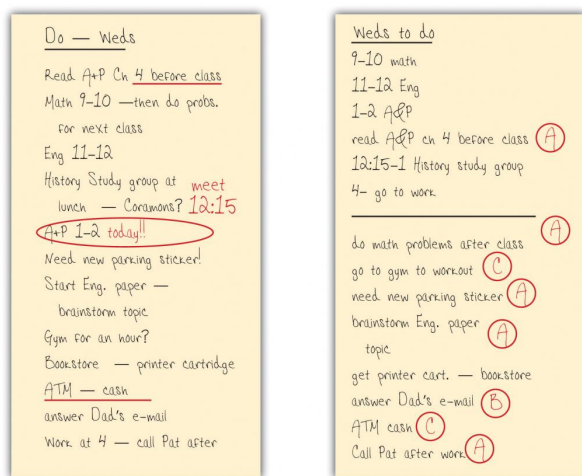 Do — Weds
Read A+P Ch 4 before class
Math 9-10 —then do probs.
for next class
Eng 11-12
History Study group at meet
lunch — Coramons? 12:15
A+P 1-2 today!!
Need new parking sticker!
Start Eng. paper —
brainstorm topic
Gym for an hour?
Bookstore — printer cartridge
ATM — cash
answer Dad's e-mail
Work at 4 — call Pat after
Weds to do
9-10 math
11-12 Eng
1-2 A&P
read A&P ch 4 before class A
12:15-1 History study group
4- go to work
A
do math problems after class
go to gym to workout C
need new parking sticker A
brainstorm Eng. paper A
topic
get printer cart. — bookstore
answer Dad's e-mail B
ATM cash C
Call Pat after work A